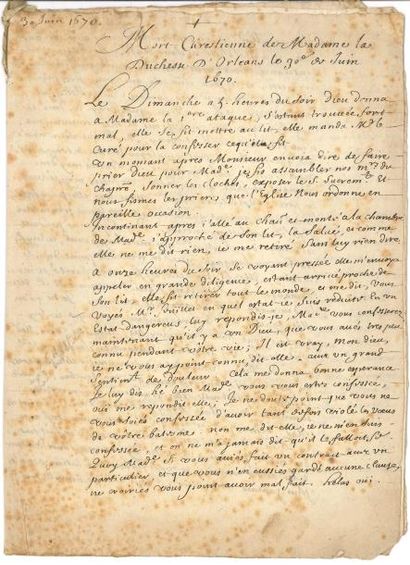 30 Juin 1670.
+
Mort Chrestienne de Madame la
Duchesse D'Orleans le 30e de Juin
1670.
Le Dimanche a 5 heures du soir Dieu donna
a Madame la 1ere attaque, s'estant trouvée fort
mal, elle se fit mettre au lit, elle manda Mr. le
Curé pour la confesser ce qu'il fit
un moment apres Monsieur envoya dire de faire
prier dieu pour Made. je fis assembler nos mrs. du
chapre, sonner les cloches, exposer le St. Sacremt. Et
nous fismes les prieres que l'Eglise Nous ordonne en
pareille occasion.
Incontinant apres j'allé au chau et monté a la chambre
de Made. j'approché de son lit, la salué, et comme
elle ne me dit rien, ie me retiré sans luy rien dire
A onze heures du soir se voyant pressée elle m'envoya
appeler en grande diligence, estant arrivé proche de
son lit, elle fit retirer tout le monde, et me dit, vous
voyés Mr. feuillet en quel estat ie suis reduite. En un
Estat dangereux luy repondis-je, Made. vous confesserez
maintenant qu'il y a un Dieu, que vous avés tres peu
connu pendant vostre vie; Il est vray, mon Dieu,
ie ne vous ay point connu, dit elle aux un grand
sentiment de douleur. Cela me donna bonne esperance
Je luy dis, he bien Made. vous vous estes confessée,
oui me repondit elle; Je ne doute point que vous ne
vous soiés confessée d'avoir tant de fois violé les voeus
de vostre batesme non me dit elle, ie ne m'en suis
confessée, et on ne m'a jamais dit qu'il le fallut,
Quoy Made. si vous aviés fait un contract aux un
particulier, et que vous n'en eussiés gardé aucune clause,
ne croiriés vous point avoir mal fait. helas oui.